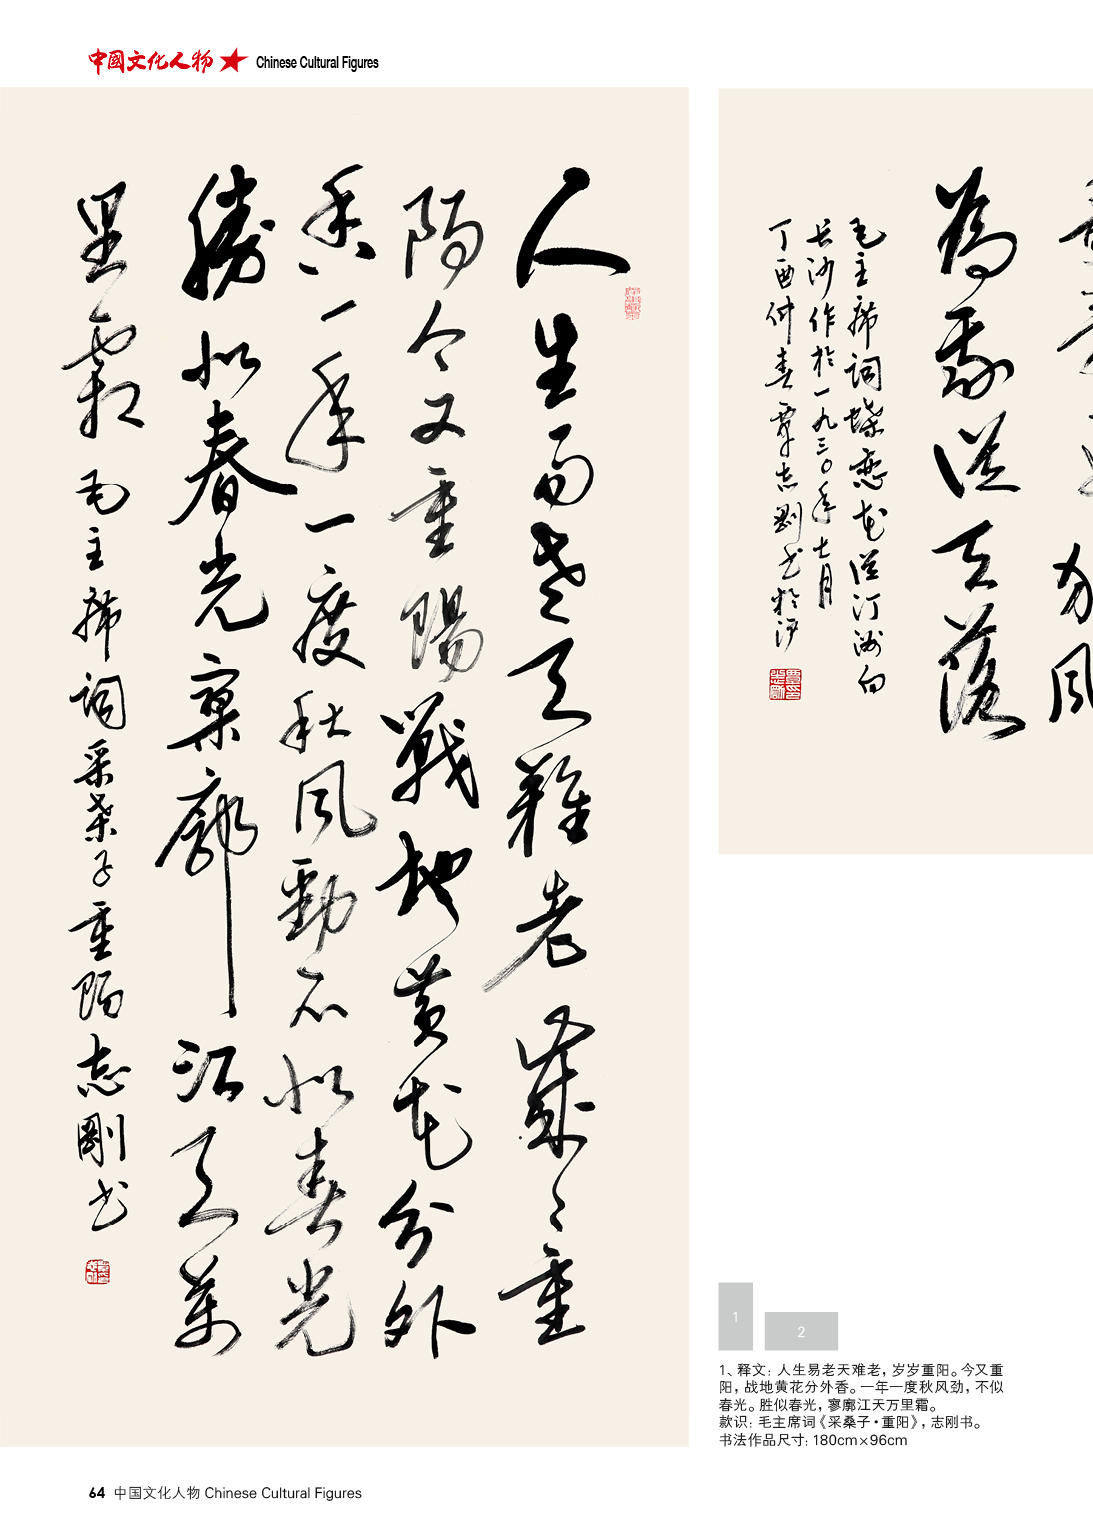 中國文化人物 Chinese Cultural Figures
人生易老天難老歲々重
陽今又重陽戰地黃花分外
香一年一度秋风勁不似春光
勝似春光寥廓江天萬
里霜 毛主席词采桑子重陽志剛书
為我從天落
毛主席词蝶恋花從汀洲向
长沙作於一九三〇年七月
丁酉仲春覃志剛书於沪
1
2
1、释文：人生易老天难老，岁岁重阳。今又重
阳，战地黄花分外香。一年一度秋风劲，不似
春光。胜似春光，寥廓江天万里霜。
款识：毛主席词《采桑子·重阳》，志刚书。
书法作品尺寸：180cm×96cm
64 中国文化人物 Chinese Cultural Figures